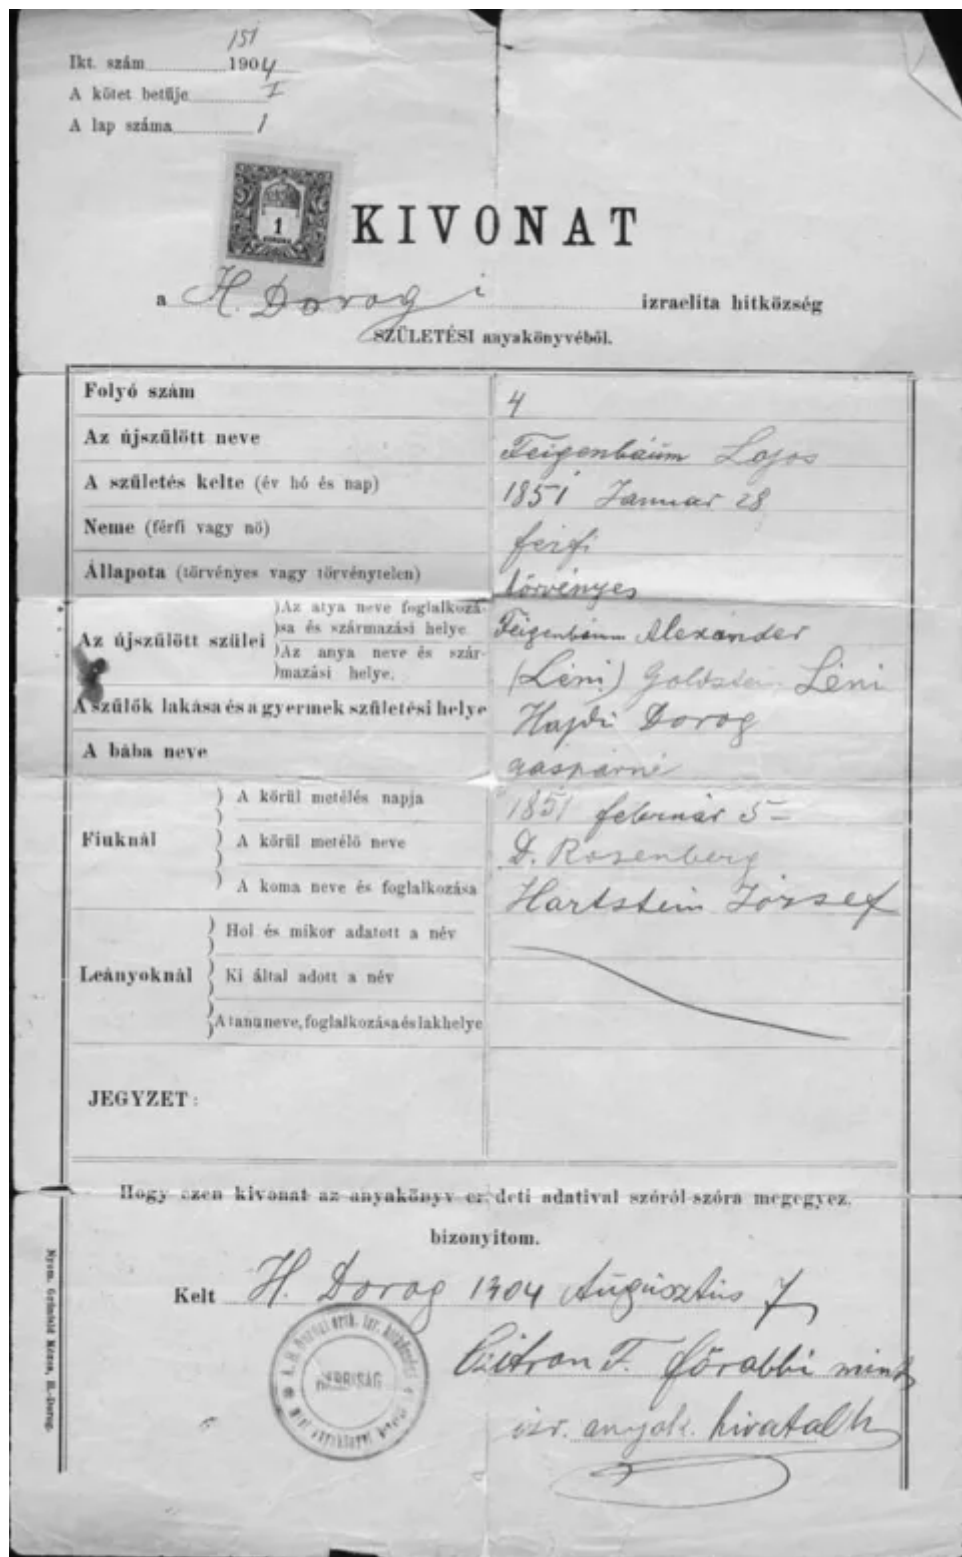 151
Ikt. szám 1904
A kötet betüje I
A lap száma 1
1
KIVONAT
a H. Dorogi izraelita hitközség
SZÜLETÉSI anyakönyvéből.
Folyó szám 4
Az újszülött neve Feigenbaum Lajos
A születés kelte (év hó és nap) 1851 Januar 28
Neme (férfi vagy nő) férfi
Állapota (törvényes vagy törvénytelen) törvényes
Az újszülött szülei )Az atya neve foglalkozá-
)sa és származási helye Feigenbaum Alexander
)Az anya neve és szár-
)mazási helye. (Léni) Goldstein Léni
A szülők lakása és a gyermek születési helye Hajdú Dorog
A bába neve gaspárné
Fiuknál A körül metélés napja 1851 február 5-
A körül metélő neve D. Rosenberg
A koma neve és foglalkozása Hartstein József
Leányoknál Hol és mikor adatott a név
Ki által adott a név
A tanu neve, foglalkozása és lakhelye
JEGYZET:
Hogy ezen kivonat az anyakönyv eredeti adatival szóról-szóra megegyez,
bizonyitom.
Kelt H. Dorog 1904 Augúsztús 7
Czitron F. főrabbi mint
izr. anyak. hivatalh
Nyom. Grünfeld Mózes, H.-Dorog.